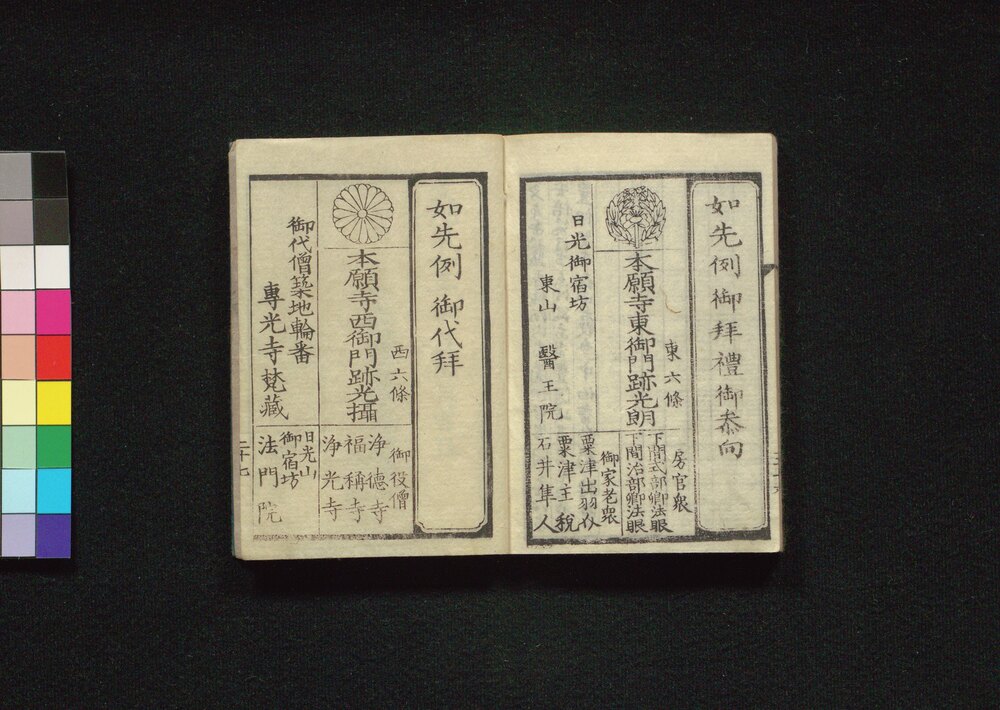 如先例御拜禮御忝向
東六條
本願寺東御門跡光朗
日光御宿坊
東山醫王院
房官衆
下間式部卿法眼
下間治部卿法眼
御家老衆
粟津出羽介
粟津主税
石井隼人
如先例御代拜
西六條
本願寺西御門跡光攝
御代僧築地輪番
專光寺梵藏
御役僧
浄德寺
福稱寺
浄光寺
日光山
御宿坊
法門院
二十七